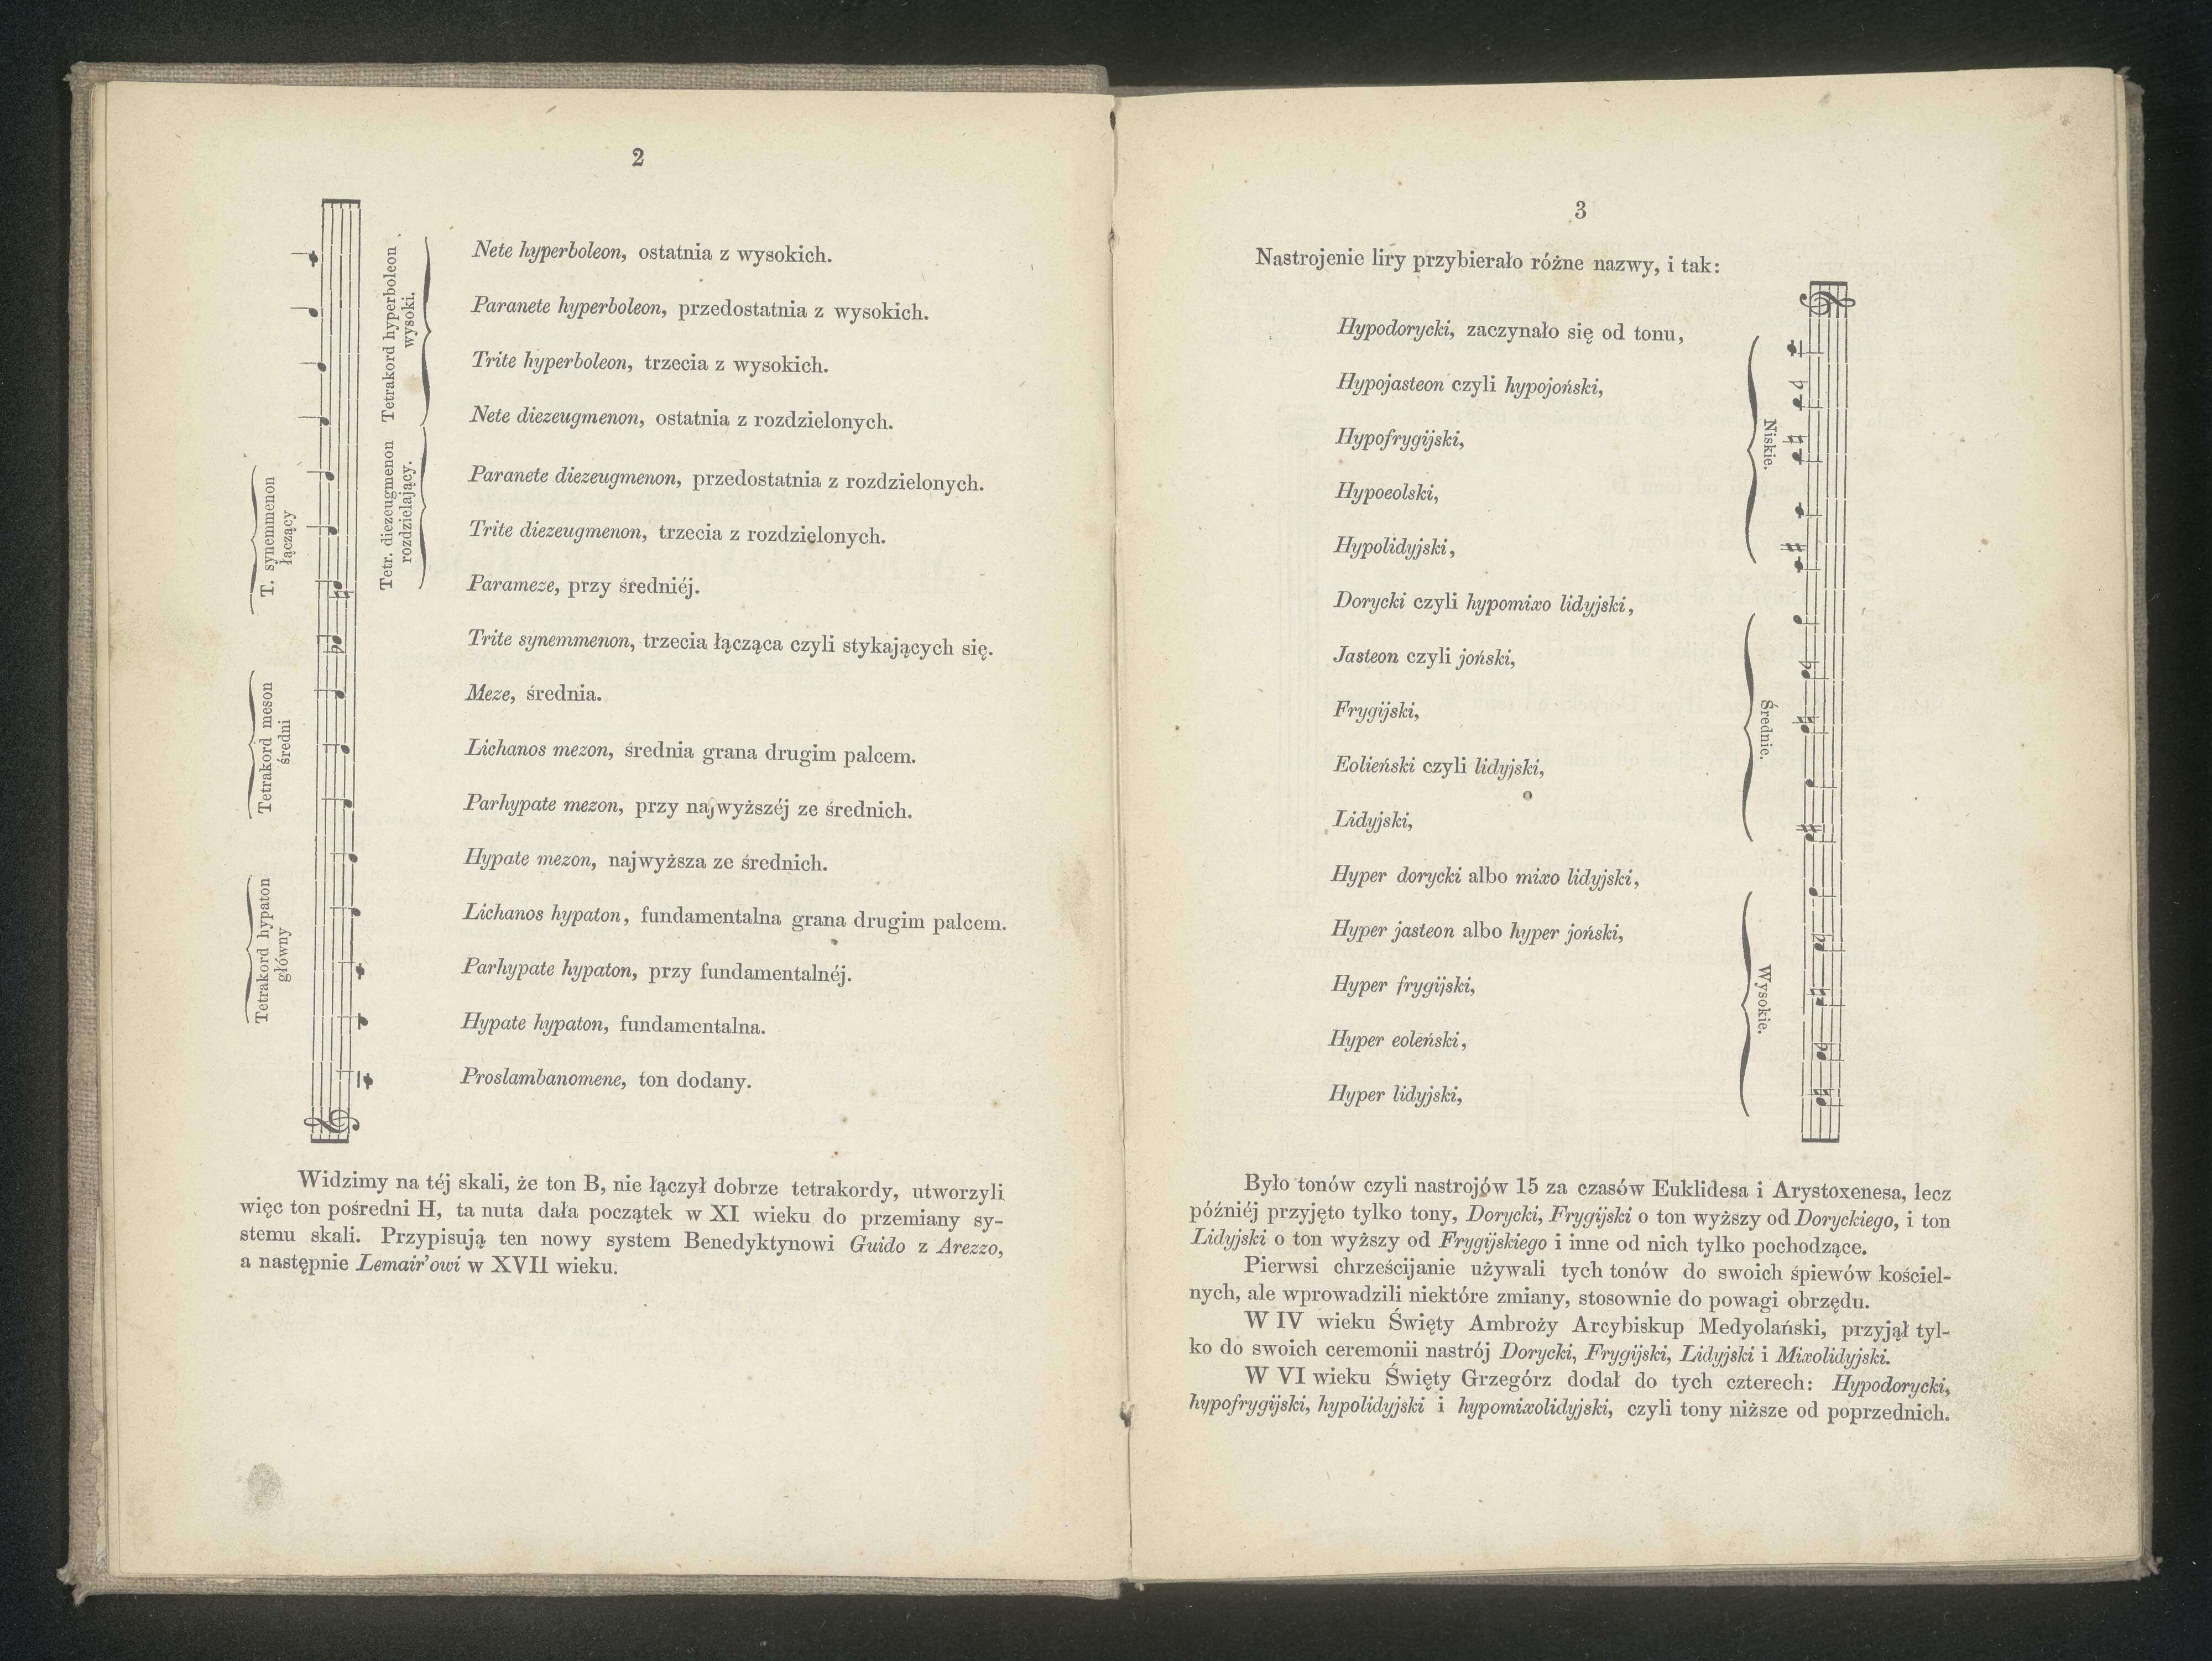 2
Tetrakord hyperboleon
wysoki.
Tetr. diezeugmenon
rozdzielający.
T. synemmenon
łączący
Tetrakord meson
średni
Tetrakord hypaton
główny
Nete hyperboleon, ostatnia z wysokich.
Paranete hyperboleon, przedostatnia z wysokich.
Trite hyperboleon, trzecia z wysokich.
Nete diezeugmenon, ostatnia z rozdzielonych.
Paranete diezeugmenon, przedostatnia z rozdzielonych.
Trite diezeugmenon, trzecia z rozdzielonych.
Parameze, przy średniéj.
Trite synemmenon, trzecia łącząca czyli stykających się.
Meze, średnia.
Lichanos mezon, średnia grana drugim palcem.
Parhypate mezon, przy najwyższéj ze średnich.
Hypate mezon, najwyższa ze średnich.
Lichanos hypaton, fundamentalna grana drugim palcem.
Parhypate hypaton, przy fundamentalnéj.
Hypate hypaton, fundamentalna.
Proslambanomene, ton dodany.
Widzimy na téj skali, że ton B, nie łączył dobrze tetrakordy, utworzyli
więc ton pośredni H, ta nuta dała początek w XI wieku do przemiany sy-
stemu skali. Przypisują ten nowy system Benedyktynowi Guido z Arezzo,
a następnie Lemair'owi w XVII wieku.
3
Nastrojenie liry przybierało różne nazwy, i tak:
Hypodorycki, zaczynało się od tonu,
Hypojasteon czyli hypojoński,
Hypofrygijski,
Hypoeolski,
Hypolidyjski,
Dorycki czyli hypomixo lidyjski,
Jasteon czyli joński,
Frygijski,
Eolieński czyli lidyjski,
Lidyjski,
Hyper dorycki albo mixo lidyjski,
Hyper jasteon albo hyper joński,
Hyper frygijski,
Hyper eoleński,
Hyper lidyjski,
Niskie.
Średnie.
Wysokie.
Było tonów czyli nastrojów 15 za czasów Euklidesa i Arystoxenesa, lecz
późniéj przyjęto tylko tony, Dorycki, Frygijski o ton wyższy od Doryckiego, i ton
Lidyjski o ton wyższy od Frygijskiego i inne od nich tylko pochodzące.
Pierwsi chrześcijanie używali tych tonów do swoich śpiewów kościel-
nych, ale wprowadzili niektóre zmiany, stosownie do powagi obrzędu.
W IV wieku Święty Ambroży Arcybiskup Medyolański, przyjął tyl-
ko do swoich ceremonii nastrój Dorycki, Frygijski, Lidyjski i Mixolidyjski.
W VI wieku Święty Grzegórz dodał do tych czterech: Hypodorycki,
hypofrygijski, hypolidyjski i hypomixolidyjski, czyli tony niższe od poprzednich.